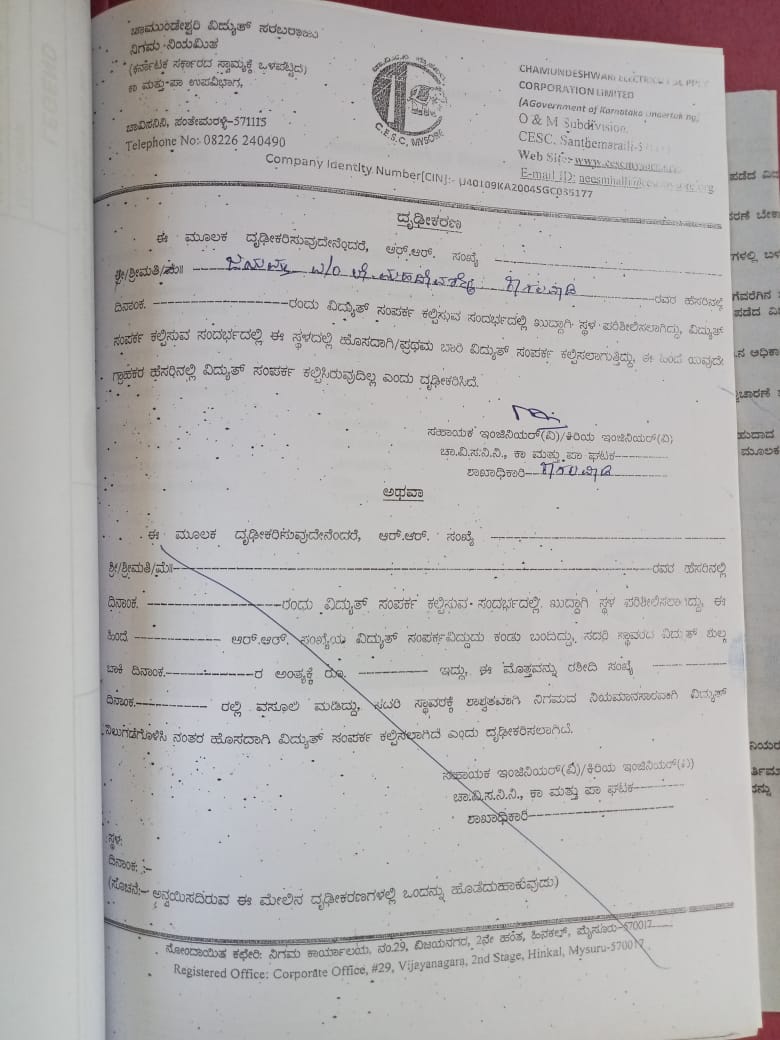 ಚಾಮುಂಡೇಶ್ವರಿ ವಿದ್ಯುತ್ ಸರಬರಾಜು
ನಿಗಮ ನಿಯಮಿತ
(ಕರ್ನಾಟಕ ಸರ್ಕಾರದ ಸ್ವಾಮ್ಯಕ್ಕೆ ಒಳಪಟ್ಟಿದೆ)
ಕಾ ಮತ್ತು ಪಾ ಉಪವಿಭಾಗ,
ಚಾವಿಸನಿನಿ, ಸಂತೇಮರಳ್ಳಿ-571115
Telephone No: 08226 240490
C.E.S.C, MYSORE
CHAMUNDESHWARI ELECTRICITY SUPPLY
CORPORATION LIMITED
(AGovernment of Karnataka undertaking)
O & M Subdivision,
CESC, Santhemaralli-5
Web Site:- www.
E-mail ID:
Company Identity Number[CIN]:- U40109KA2004SGC035177
ದೃಢೀಕರಣ
ಈ ಮೂಲಕ ದೃಢೀಕರಿಸುವುದೇನೆಂದರೆ, ಆರ್.ಆರ್. ಸಂಖ್ಯೆ
ಶ್ರೀ/ಶ್ರೀಮತಿ/ಮೆ॥ ಜಯಮ್ಮ W/O ಲೇ ಮಹದೇವಶೆಟ್ಟಿ ರವರ ಹೆಸರಿನಲ್ಲಿ
ದಿನಾಂಕ. ರಂದು ವಿದ್ಯುತ್ ಸಂಪರ್ಕ ಕಲ್ಪಿಸುವ ಸಂದರ್ಭದಲ್ಲಿ ಖುದ್ದಾಗಿ ಸ್ಥಳ ಪರಿಶೀಲಿಸಲಾಗಿದ್ದು, ವಿದ್ಯುತ್
ಸಂಪರ್ಕ ಕಲ್ಪಿಸುವ ಸಂದರ್ಭದಲ್ಲಿ ಈ ಸ್ಥಳದಲ್ಲಿ ಹೊಸದಾಗಿ/ಪ್ರಥಮ ಬಾರಿ ವಿದ್ಯುತ್ ಸಂಪರ್ಕ ಕಲ್ಪಿಸಲಾಗುತ್ತಿದ್ದು, ಈ ಹಿಂದೆ ಯಾವುದೇ
ಗ್ರಾಹಕರ ಹೆಸರಿನಲ್ಲಿ ವಿದ್ಯುತ್ ಸಂಪರ್ಕ ಕಲ್ಪಿಸಿರುವುದಿಲ್ಲ ಎಂದು ದೃಢೀಕರಿಸಿದೆ.
ಸಹಾಯಕ ಇಂಜಿನಿಯರ್(ವಿ)/ಕಿರಿಯ ಇಂಜಿನಿಯರ್(ವಿ)
ಚಾ.ವಿ.ಸ.ನಿ.ನಿ., ಕಾ ಮತ್ತು ಪಾ ಘಟಕ
ಶಾಖಾಧಿಕಾರಿ
ಅಥವಾ
ಈ ಮೂಲಕ ದೃಢೀಕರಿಸುವುದೇನೆಂದರೆ, ಆರ್.ಆರ್. ಸಂಖ್ಯೆ
ಶ್ರೀ/ಶ್ರೀಮತಿ/ಮೆ॥ ರವರ ಹೆಸರಿನಲ್ಲಿ
ದಿನಾಂಕ. ರಂದು ವಿದ್ಯುತ್ ಸಂಪರ್ಕ ಕಲ್ಪಿಸುವ ಸಂದರ್ಭದಲ್ಲಿ ಖುದ್ದಾಗಿ ಸ್ಥಳ ಪರಿಶೀಲಿಸಲಾಗಿದ್ದು, ಈ
ಹಿಂದೆ ಆರ್.ಆರ್. ಸಂಖ್ಯೆಯ ವಿದ್ಯುತ್ ಸಂಪರ್ಕವಿದ್ದುದು ಕಂಡು ಬಂದಿದ್ದು, ಸದರಿ ಸ್ಥಾವರದ ವಿದ್ಯುತ್ ಶುಲ್ಕ
ಬಾಕಿ ದಿನಾಂಕ. ರ ಅಂತ್ಯಕ್ಕೆ ರೂ. ಇದ್ದು, ಈ ಮೊತ್ತವನ್ನು ರಶೀದಿ ಸಂಖ್ಯೆ
ದಿನಾಂಕ. ರಲ್ಲಿ ವಸೂಲಿ ಮಡಿದ್ದು, ಸದರಿ ಸ್ಥಾವರಕ್ಕೆ ಶಾಶ್ವತವಾಗಿ ನಿಗಮದ ನಿಯಮಾನುಸಾರವಾಗಿ ವಿದ್ಯುತ್
ನಿಲುಗಡೆಗೊಳಿಸಿ ನಂತರ ಹೊಸದಾಗಿ ವಿದ್ಯುತ್ ಸಂಪರ್ಕ ಕಲ್ಪಿಸಲಾಗಿದೆ ಎಂದು ದೃಢೀಕರಿಸಲಾಗಿದೆ.
ಸಹಾಯಕ ಇಂಜಿನಿಯರ್(ವಿ)/ಕಿರಿಯ ಇಂಜಿನಿಯರ್(ವಿ)
ಚಾ.ವಿ.ಸ.ನಿ.ನಿ., ಕಾ ಮತ್ತು ಪಾ ಘಟಕ
ಶಾಖಾಧಿಕಾರಿ
ಸ್ಥಳ:
ದಿನಾಂಕ: :-
(ಸೂಚನೆ:- ಅನ್ವಯಿಸದಿರುವ ಈ ಮೇಲಿನ ದೃಢೀಕರಣಗಳಲ್ಲಿ ಒಂದನ್ನು ಹೊಡೆದುಹಾಕುವುದು)
ನೋಂದಾಯಿತ ಕಛೇರಿ: ನಿಗಮ ಕಾರ್ಯಾಲಯ, ನಂ.29, ವಿಜಯನಗರ, 2ನೇ ಹಂತ, ಹಿನಕಲ್, ಮೈಸೂರು-570017
Registered Office: Corporate Office, #29, Vijayanagara, 2nd Stage, Hinkal, Mysuru-570017